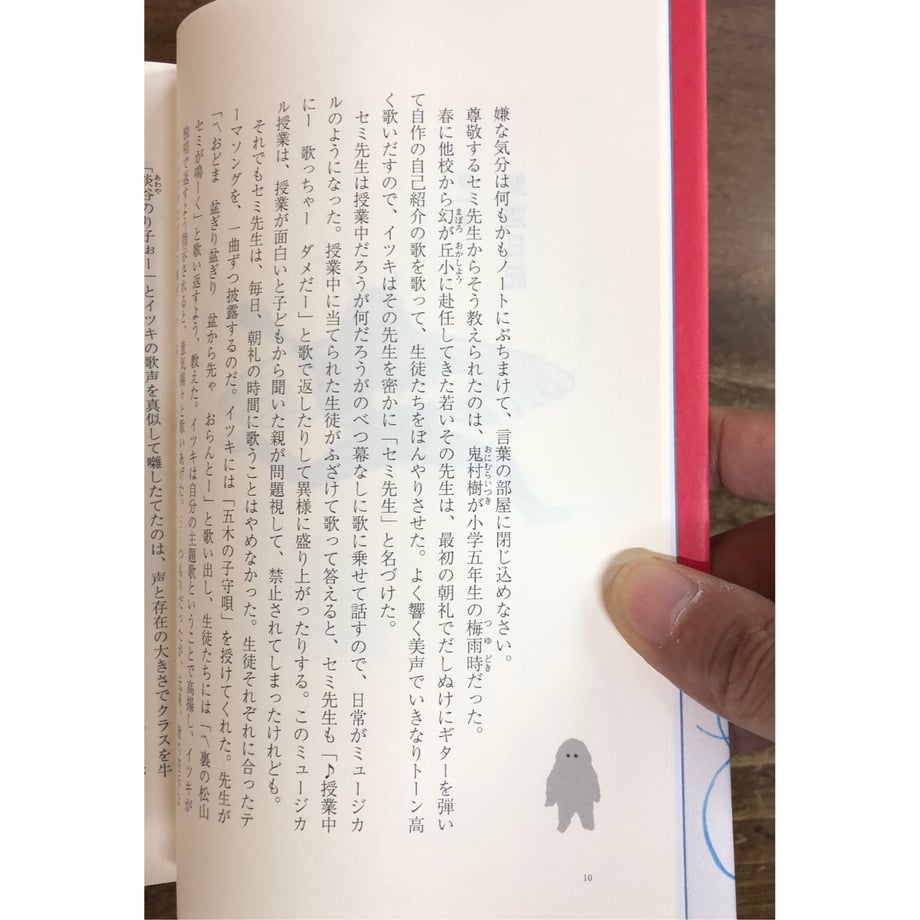 嫌な気分は何もかもノートにぶちまけて、言葉の部屋に閉じ込めなさい。
尊敬するセミ先生からそう教えられたのは、鬼村樹が小学五年生の梅雨時だった。
春に他校から幻が丘小に赴任してきた若いその先生は、最初の朝礼でだしぬけにギターを弾い
て自作の自己紹介の歌を歌って、生徒たちをぽんやりさせた。よく響く美声でいきなりトーン高
く歌いだすので、イツキはその先生を密かに「セミ先生」と名づけた。
セミ先生は授業中だろうが何だろうがのべつ幕なしに歌に乗せて話すので、日常がミュージカ
ルのようになった。授業中に当てられた生徒がふざけて歌って答えると、セミ先生も「♪授業中
にー 歌っちゃー ダメだー」と歌で返したりして異様に盛り上がったりする。このミュージカ
ル授業は、授業が面白いと子どもから聞いた親が問題視して、禁止されてしまったけれども。
それでもセミ先生は、毎日、朝礼の時間に歌うことはやめなかった。生徒それぞれに合ったテ
ーマソングを、一曲ずつ披露するのだ。イツキには「五木の子守唄」を授けてくれた。先生が
「〽おどま 盆ぎり盆ぎり 盆から先ゃ おらんとー」と歌い出し、生徒たちには「〽裏の松山
セミが鳴ーく」と歌い返すよう、教えた。イツキは自分の主題歌ということで高揚し、イツキが
「淡谷のり子ぉー」とイツキの歌声を真似して囃したてたのは、声と存在の大きさでクラスを牛
10